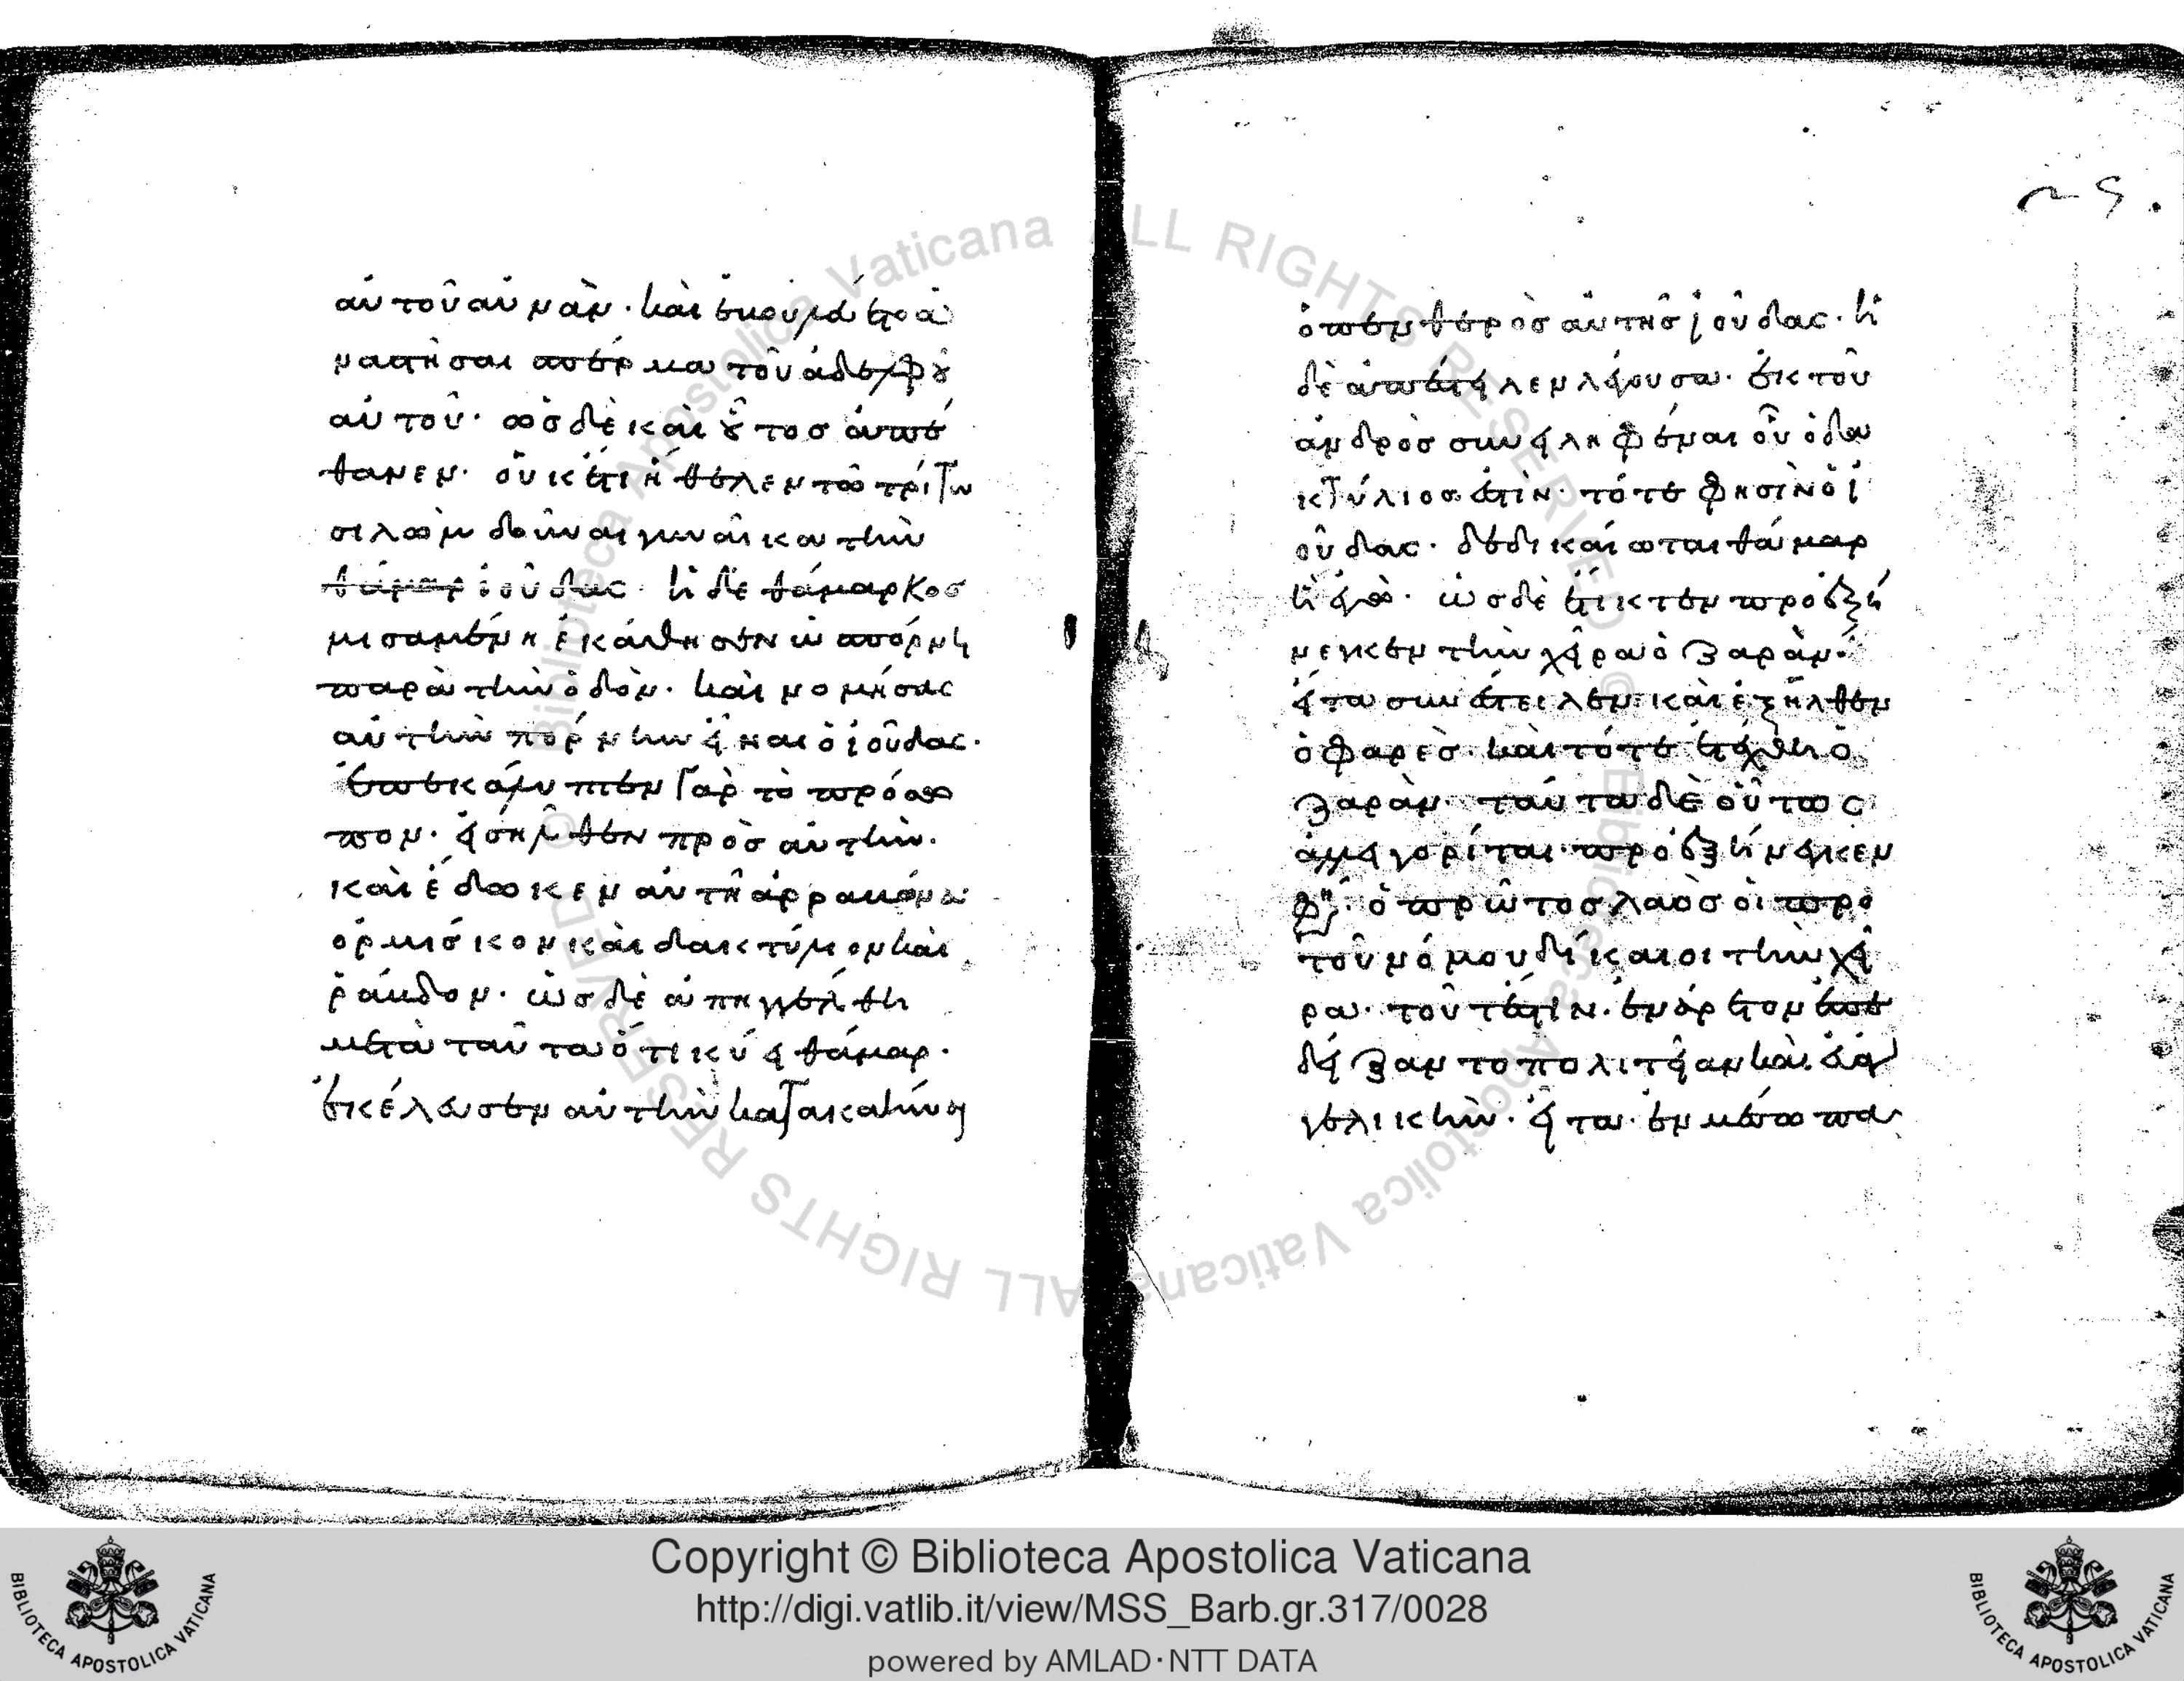 αὐτοῦ αὐνὰν· καὶ ἐκουμάτησα
ναστῆσαι σπέρμα τοῦ ἀδελφοῦ
αὐτοῦ· ὡς δὲ καὶ οὗτος ἀπέ
θανεν· οὐκέτι ἤθελεν τῶ τρίτω
σιλὼμ δοῦναι γυναῖκα τὴν
θάμαρ ἰούδας· ἡ δὲ θάμαρ κοσ
μισαμένη ἐκάθησεν ὡ σπόρνη
παρὰ τὴν ὁδόν· καὶ νομήσας
αὐτὴν πόρνην εἶναι ὁ ἰούδας·
ἐπεκάλυπτεν γὰρ τὸ πρόσω
πον· εἰσῆλθεν πρὸς αὐτὴν·
καὶ ἔδωκεν αὐτῆ ἀρραβόνα
ὁρμίσκον καὶ δακτύλιον καὶ
ῥάβδον· ὡς δὲ ἀπηγγέλθη
μετὰ ταῦτα ὅτι κύει θάμαρ·
ἐκέλευσεν αὐτὴν κατακαῆναι
ὁ πενθερὸς αὐτῆς ἰούδας· ἡ
δὲ ἀπέστειλεν λέγουσα· ἐκ τοῦ
ἀνδρὸς συνείληφέναι οὗ ὁ δα
κτύλιος ἐστὶν· τότε φησὶν ὁ ἰ
ούδας· δεδικαίωται θάμαρ
ἢ ἐγὼ· ὡς δὲ ἔτικτεν προεξή
νεγκεν τὴν χεῖρα ὁ ζαρὰν·
εἶτα συνέστειλεν· καὶ ἐξῆλθεν
ὁ φαρὲς· καὶ τότε ἐτέχθη ὁ
ζαρὰν· ταῦτα δὲ οὕτως
ἀλληγορίται· προεξήνεικεν
φη· ὁ πρῶτος λαὸς οἱ πρὸ
τοῦ νόμου δίκαιοι τὴν χεῖ
ρα· τοῦτ' ἐστιν· ἐνάρετον ἐπε
δείξαντο πολιτείαν καὶ εὐαγ
γελικὴν· εἶτα· ἐν μέσω πα
Copyright © Biblioteca Apostolica Vaticana
http://digi.vatlib.it/view/MSS_Barb.gr.317/0028
powered by AMLAD·NTT DATA
BIBLIOTECA APOSTOLICA VATICANA
BIBLIOTECA APOSTOLICA VATICANA